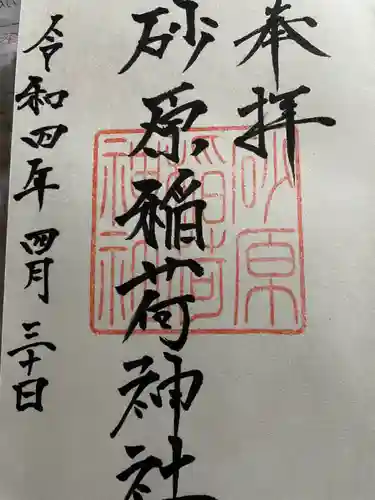 奉拝
砂原稲荷神社
令和四年四月三十日
砂原
稲荷
神社